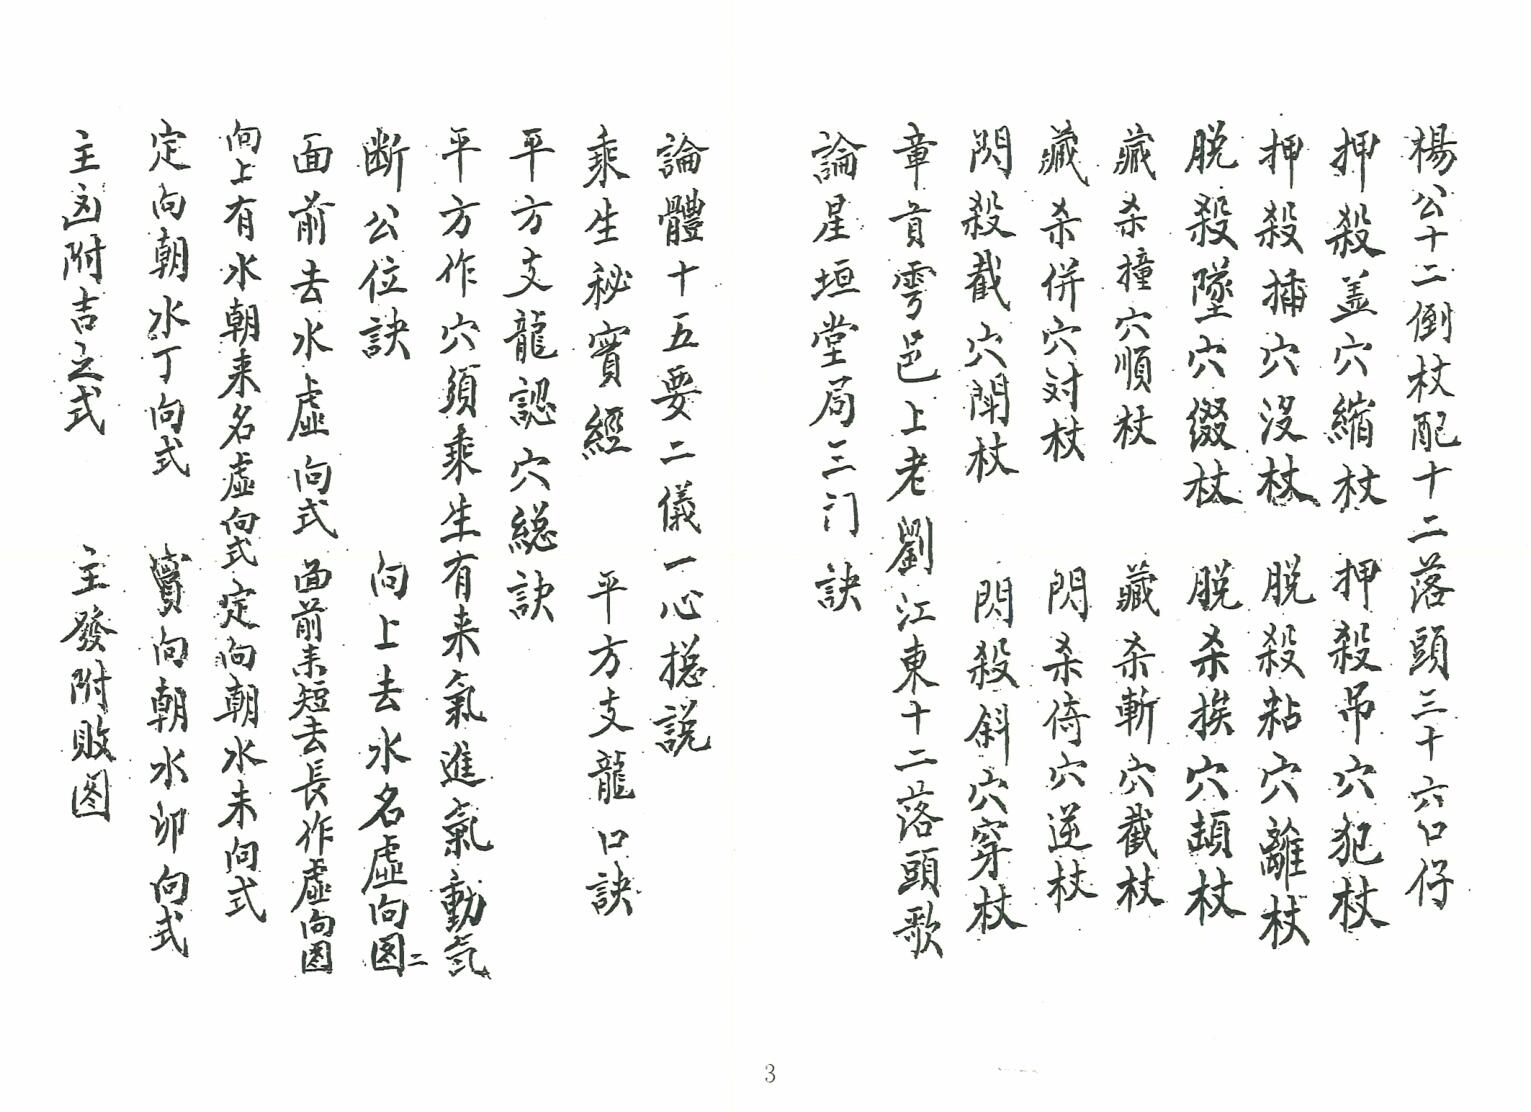 楊公十二倒杖配十二落頭三十六口仔
押殺盖穴縮杖 押殺吊穴犯杖
押殺插穴没杖 脱殺粘穴離杖
脱殺墜穴綴杖 脱杀挨穴頓杖
藏杀撞穴順杖 藏杀斬穴截杖
藏杀併穴对杖 閃杀倚穴逆杖
閃殺截穴開杖 閃殺斜穴穿杖
章貢雩邑上老劉江東十二落頭歌
論星垣堂局三门訣
論體十五要二儀一心摠説
乘生秘寳經 平方支龍口訣
平方支龍認穴総訣
平方作穴須乘生有来氣進氣動氣
断公位訣 向上去水名虚向图二
面前去水虚向式 面前来短去長作虚向图
向上有水朝来名虚向式 定向朝水未向式
定向朝水丁向式 向朝水卯向式
主凶附吉之式 主發附敗图
3